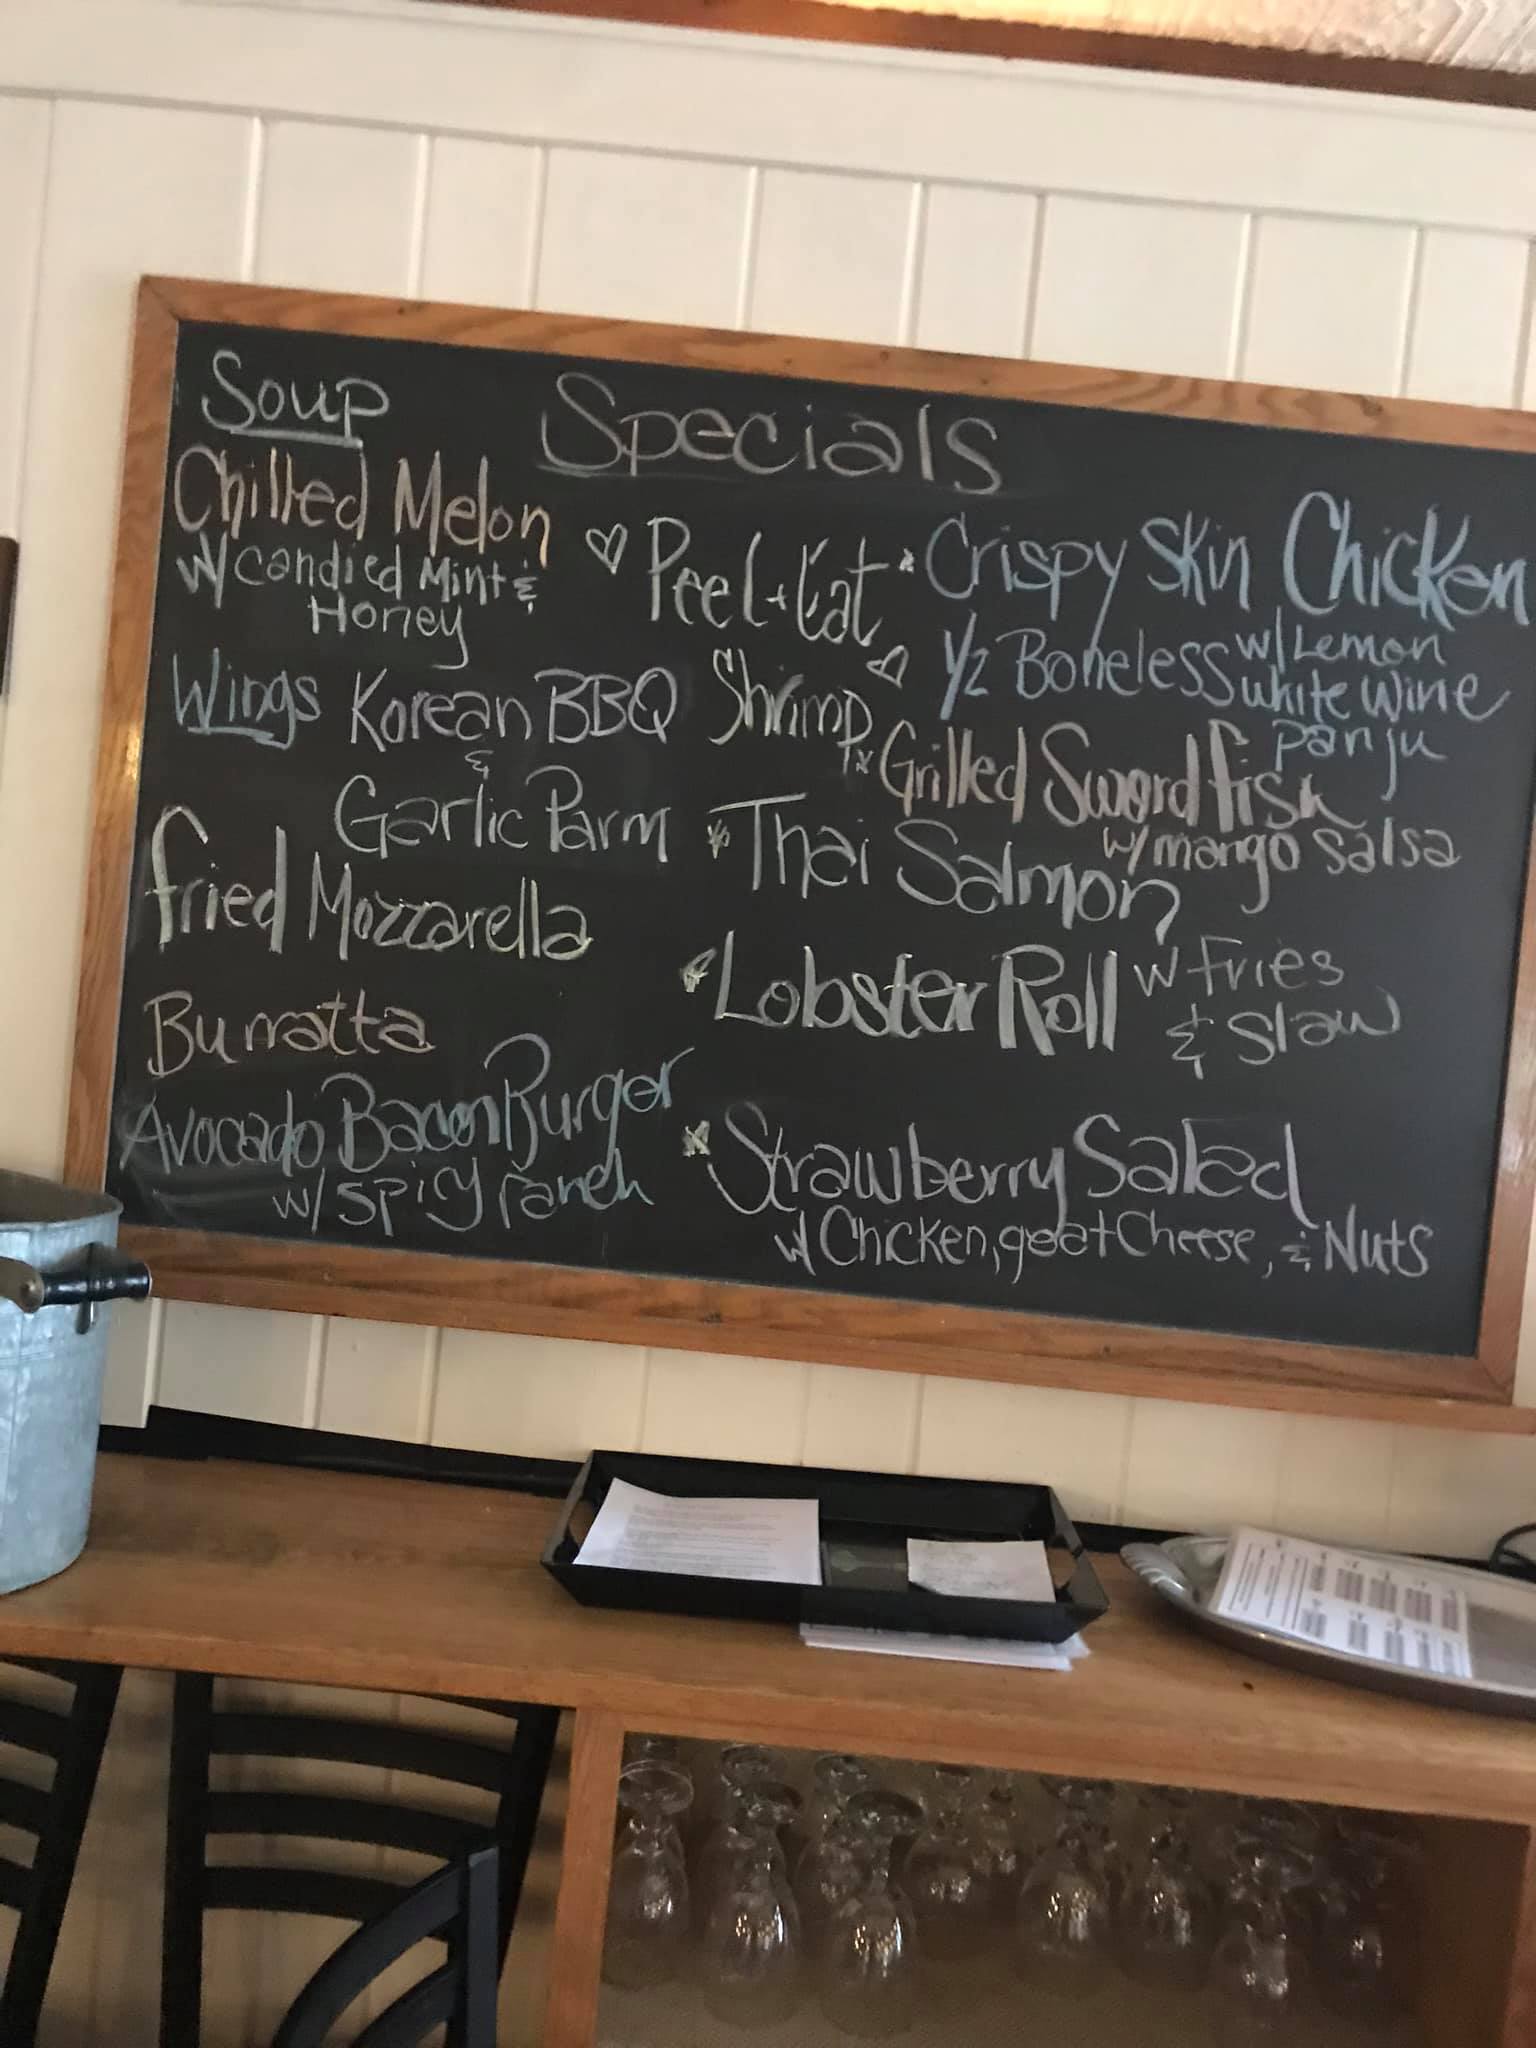 Soup
Specials
Chilled Melon
w/ candied Mint &
Honey
Wings Korean BBQ
&
Garlic Parm
Fried Mozzarella
Burratta
Avocado Bacon Burger
w/ spicy ranch
Peel + Eat
Shrimp
Crispy Skin Chicken
1/2 Boneless w/ Lemon
white wine
panju
Grilled Swordfish
w/ mango salsa
Thai Salmon
Lobster Roll w Fries
& Slaw
Strawberry Salad
w/ Chicken, goat Cheese, & Nuts